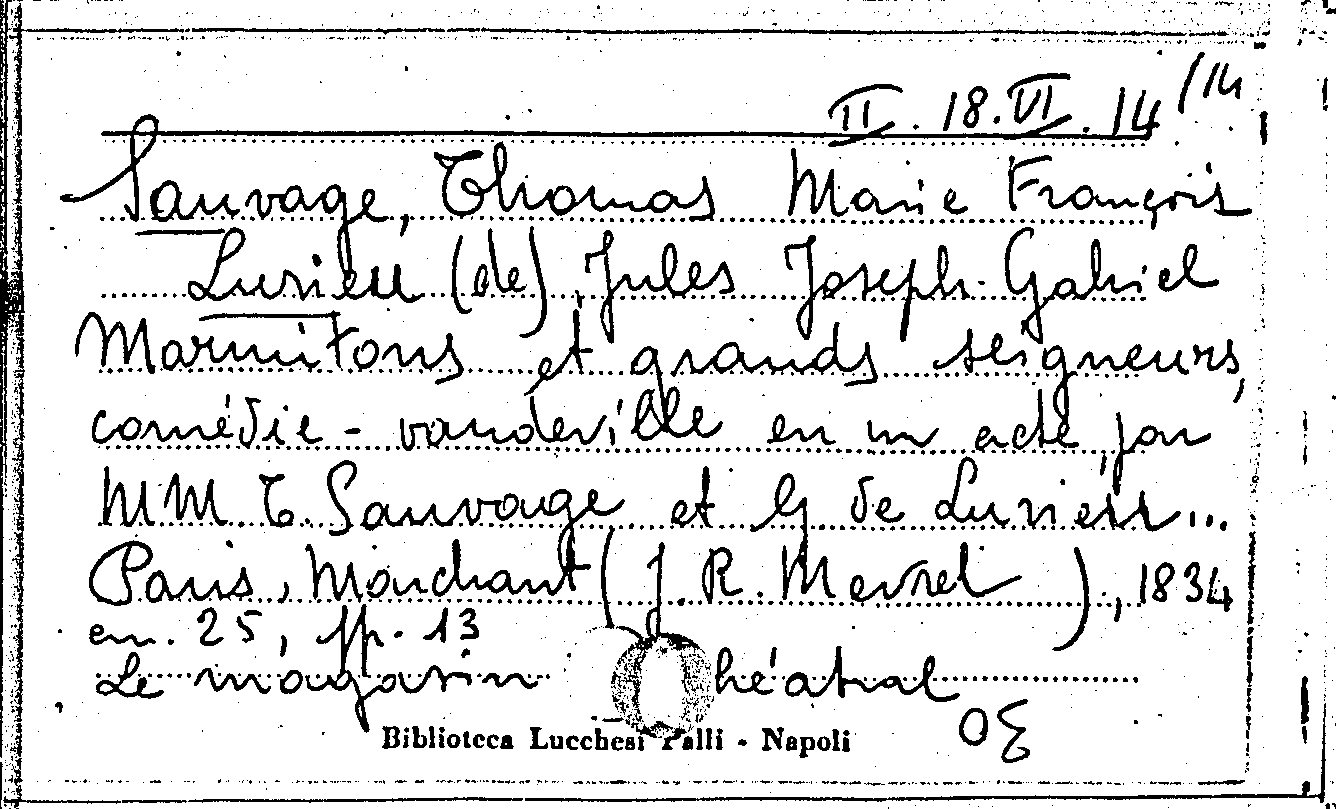 II. 18. VI. 14/14
Sauvage, Thomas Marie François
Lurieu (de), Jules Joseph Gabriel
Marmitons et grands seigneurs,
comédie - vaudeville en un acte, par
MM T. Sauvage et G de Lurieu...
Paris, Marchant (J. R. Mevrel), 1834
cm. 25, pp. 13
Le magasin théatral
OE
Biblioteca Lucchesi Palli - Napoli